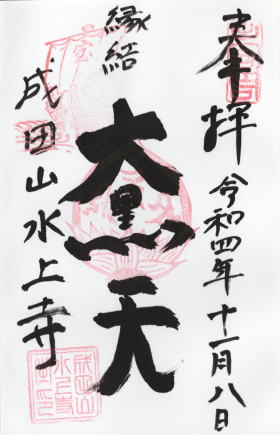 奉拝
令和四年十一月八日
縁結
大黒天
成田山水上寺
成田山
水上寺
之印